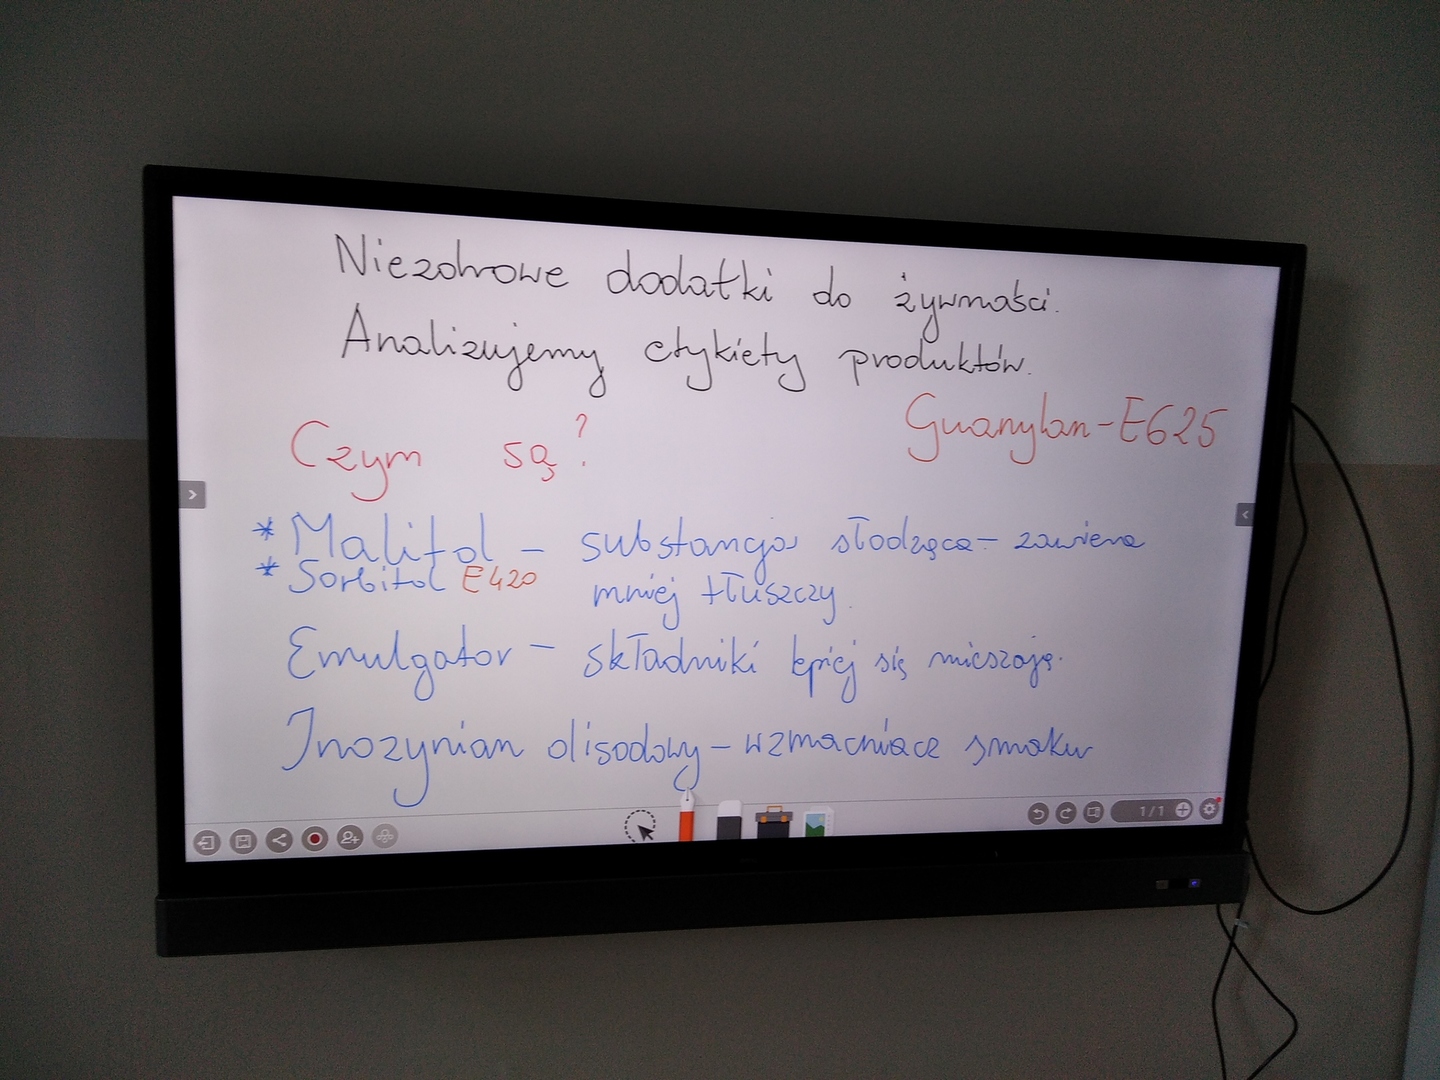 Niezdrowe dodatki do żywności.
Analizujemy etykiety produktów.
Czym są?
Guanylan-E625
* Malitol - substancja słodząca - zawiera
* Sorbitol E420 mniej tłuszczy.
Emulgator - składniki lepiej się mieszają.
Inozynian disodowy - wzmacniacz smaku
1/1